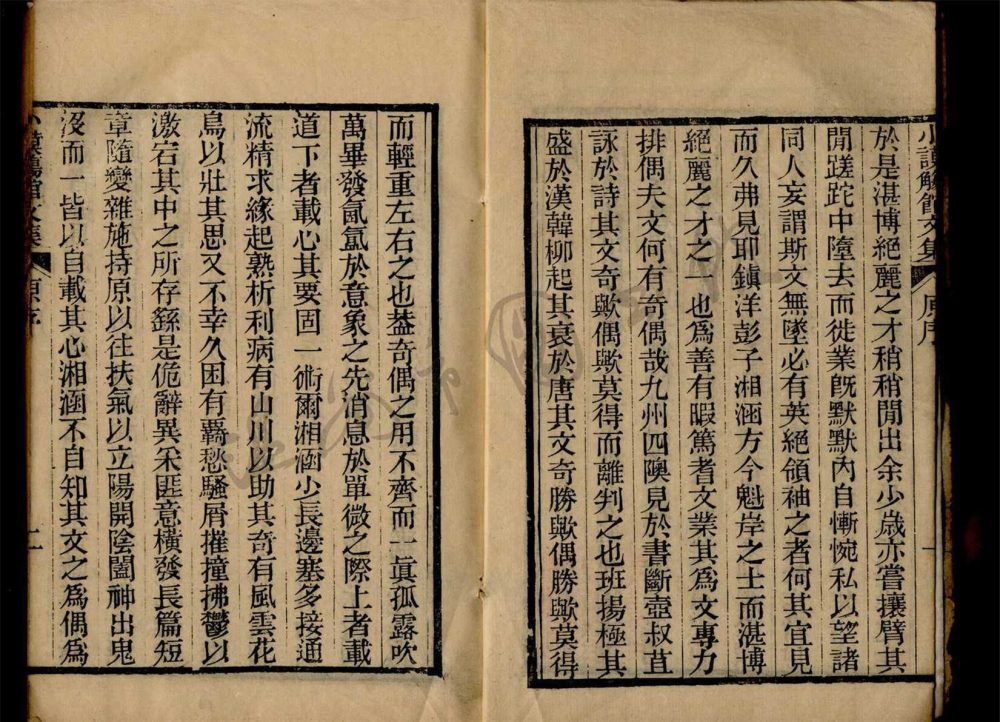 小謨觴館文集
原序
於是湛博絕麗之才稍稍閒出余少歲亦嘗攘臂其
閒蹉跎中墮去而徙業旣默默內自慚惋私以望諸
同人妄謂斯文無墜必有英絕領袖之者何其宜見
而久弗見耶鎮洋彭子湘涵方今魁岸之士而湛博
絕麗之才之一也爲善有暇篤耆文業其爲文專力
排偶夫文何有奇偶哉九州四隩見於書斷壺叔苴
詠於詩其文奇歟偶歟莫得而離判之也班揚極其
盛於漢韓柳起其衰於唐其文奇勝歟偶勝歟莫得
而輕重左右之也葢奇偶之用不齊而一眞孤露吹
萬畢發氤氳於意象之先消息於單微之際上者載
道下者載心其要固一術爾湘涵少長邊塞多接通
流精求緣起熟析利病有山川以助其奇有風雲花
鳥以壯其思又不幸久困有覊愁騷屑摧撞拂鬱以
激宕其中之所存繇是佹辭異采匪意橫發長篇短
章隨變雜施持原以往扶氣以立陽開陰闔神出鬼
沒而一皆以自載其心湘涵不自知其文之爲偶爲
小謨觴館文集
原序
二